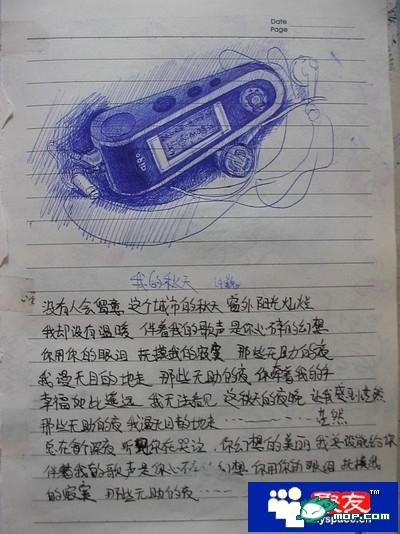 Date
Page
我的秋天 许巍
没有人会留意 这个城市的秋天 窗外阳光灿烂
我却没有温暖 伴着我的歌声 是你心碎的幻想
你用你的眼泪 抚摸我的寂寞 那些无助的夜
我漫无目的地走 那些无助的夜 你牵着我的手
幸福如此遥远 我无法看见 这秋天的夜晚 让我感到茫然
那些无助的夜 我漫无目的地走 …………
总在每个深夜 听见你在哭泣 你幻想的美丽 我 没能给你
伴着我的歌声是你心 幻想 你用你的眼泪 抚摸我
的寂寞 那些无助的夜……
聚友™
myspace.cn
mop.com